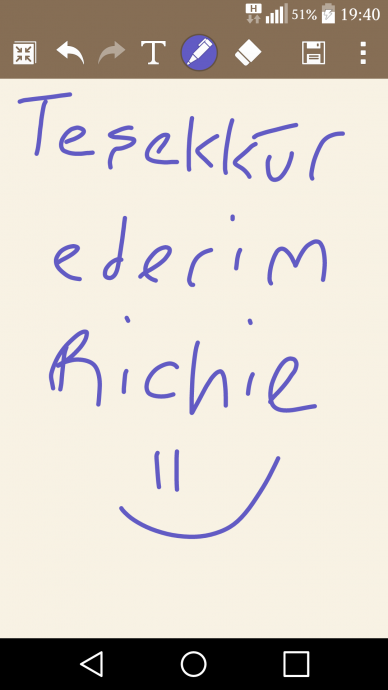 H 51% 19:40
T
Teşekkür
ederim
Richie